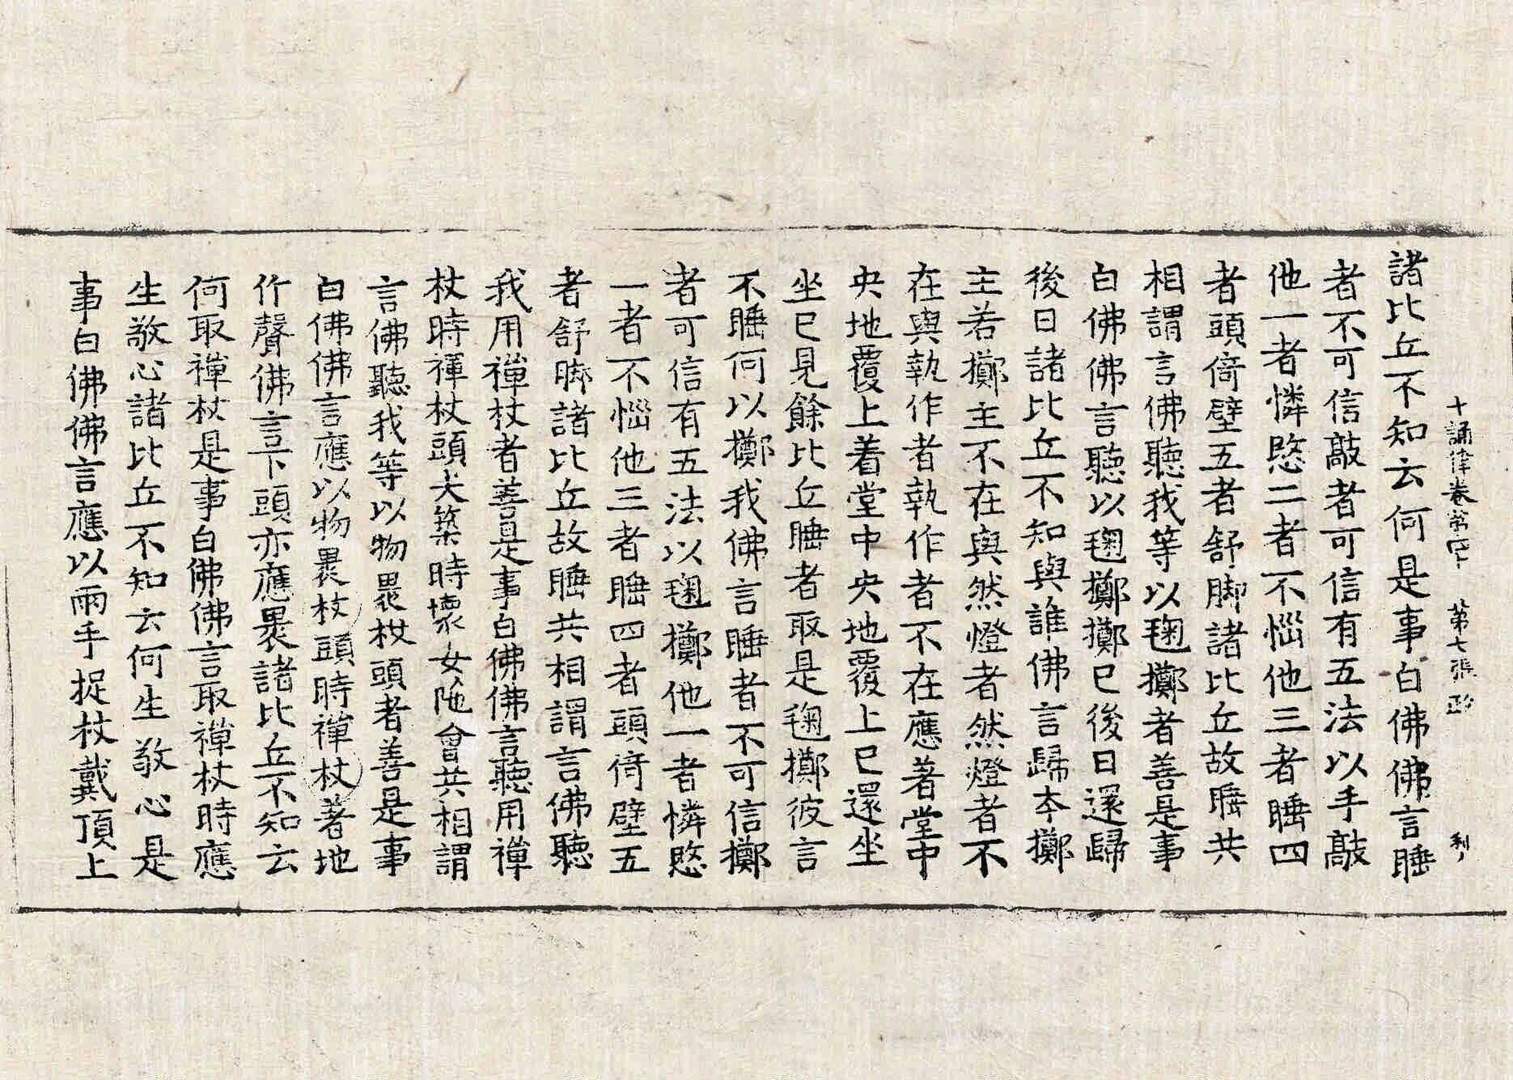 十誦律卷第四十 第七張 政 利
諸比丘不知云何是事白佛佛言睡
者不可信敲者可信有五法以手敲
他一者憐愍二者不惱他三者睡四
者頭倚壁五者舒脚諸比丘故睡共
相謂言佛聽我等以毱擲者善是事
白佛佛言聽以毱擲擲已後日還歸
後日諸比丘不知與誰佛言歸本擲
主若擲主不在與然燈者然燈者不
在與執作者執作者不在應著堂中
央地覆上着堂中央地覆上已還坐
坐已見餘比丘睡者取是毱擲彼言
不睡何以擲我佛言睡者不可信擲
者可信有五法以毱擲他一者憐愍
一者不惱他三者睡四者頭倚壁五
者舒脚諸比丘故睡共相謂言佛聽
我用禅杖者善是事白佛佛言聽用禅
杖時禅杖頭尖築時壞女陁會共相謂
言佛聽我等以物裹杖頭者善是事
白佛佛言應以物裹杖頭時禅杖著地
作聲佛言下頭亦應裹諸比丘不知云
何取禅杖是事白佛佛言取禅杖時應
生敬心諸比丘不知云何生敬心是
事白佛佛言應以兩手捉杖戴頂上